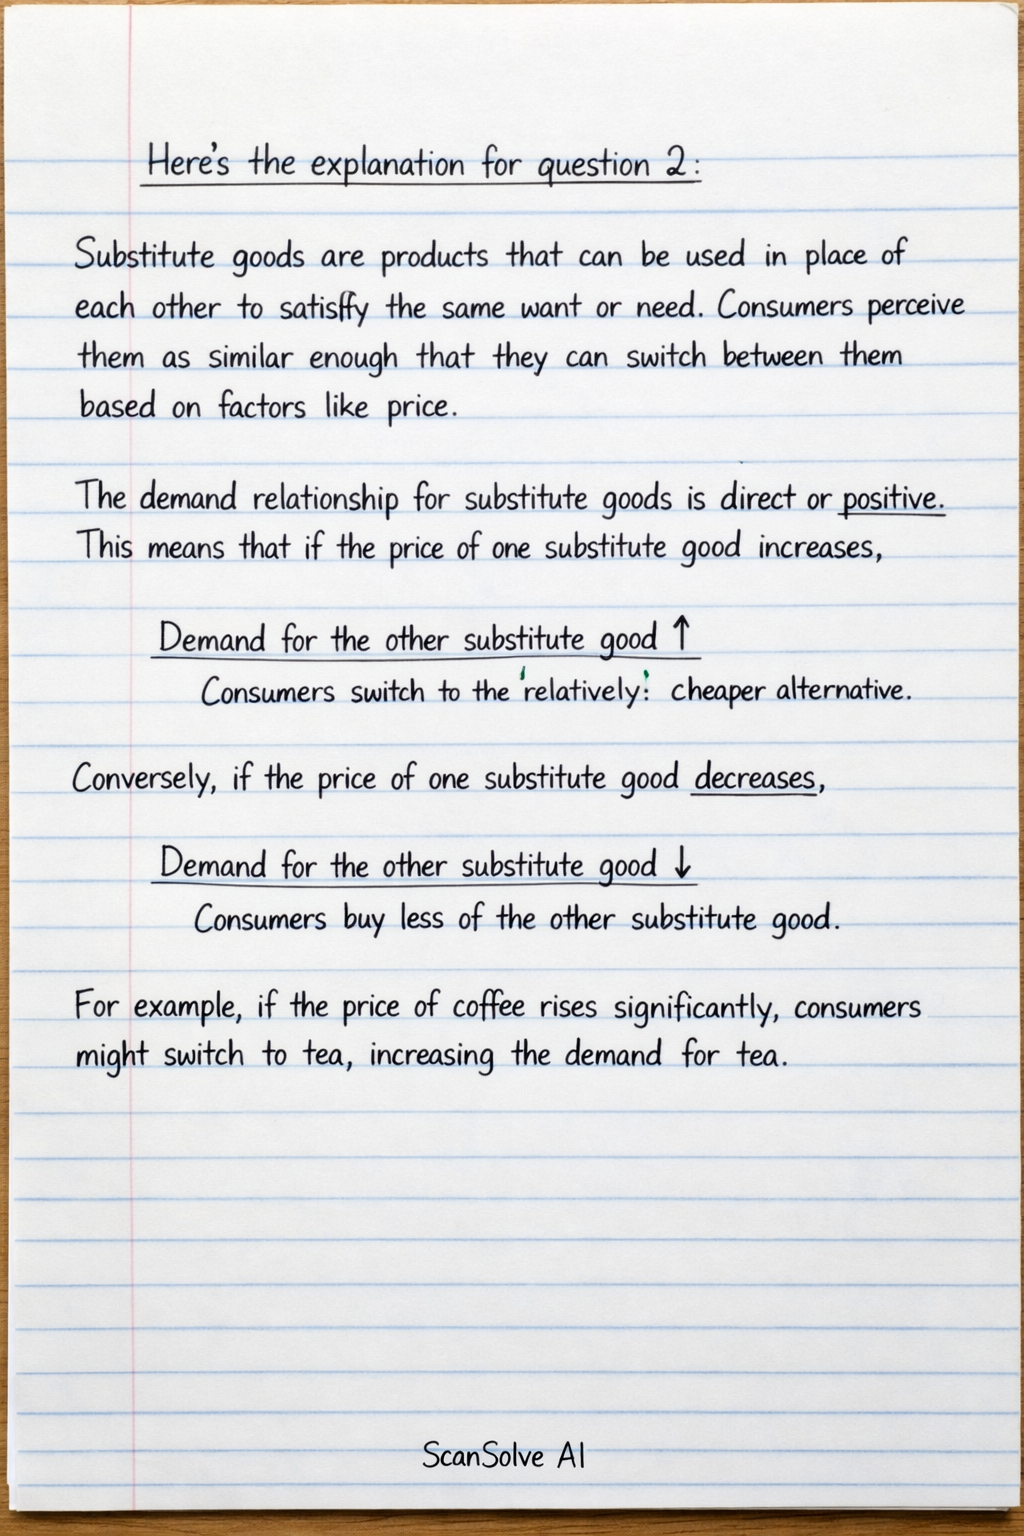 Here's the explanation for question 2:
Substitute goods are products that can be used in place of
each other to satisffy the same want or need. Consumers perceive
them as similar enough that they can switch between them
based on factors like price.
The demand relationship for substitute goods is direct or positive.
This means that if the price of one substitute good increases,
Demand for the other substitute good ↑
Consumers switch to the 'relatively: cheaper alternative.
Conversely, if the price of one substitute good decreases,
Demand for the other substitute good ↓
Consumers buy less of the other substitute good.
For example, if the price of coffee rises significantly, consumers
might switch to tea, increasing the demand for tea.
ScanSolve AI